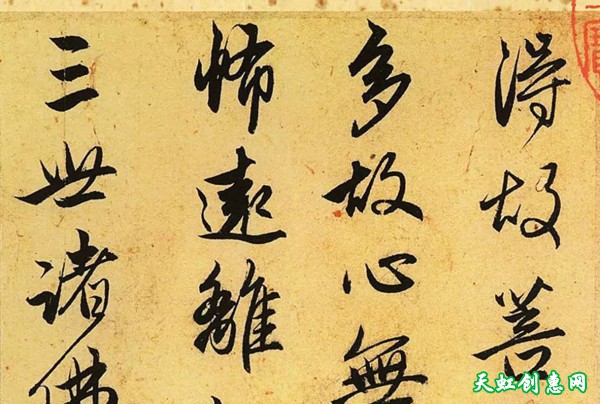 得故菩
多故心無
怖遠離
三世諸佛
天虹创惠网